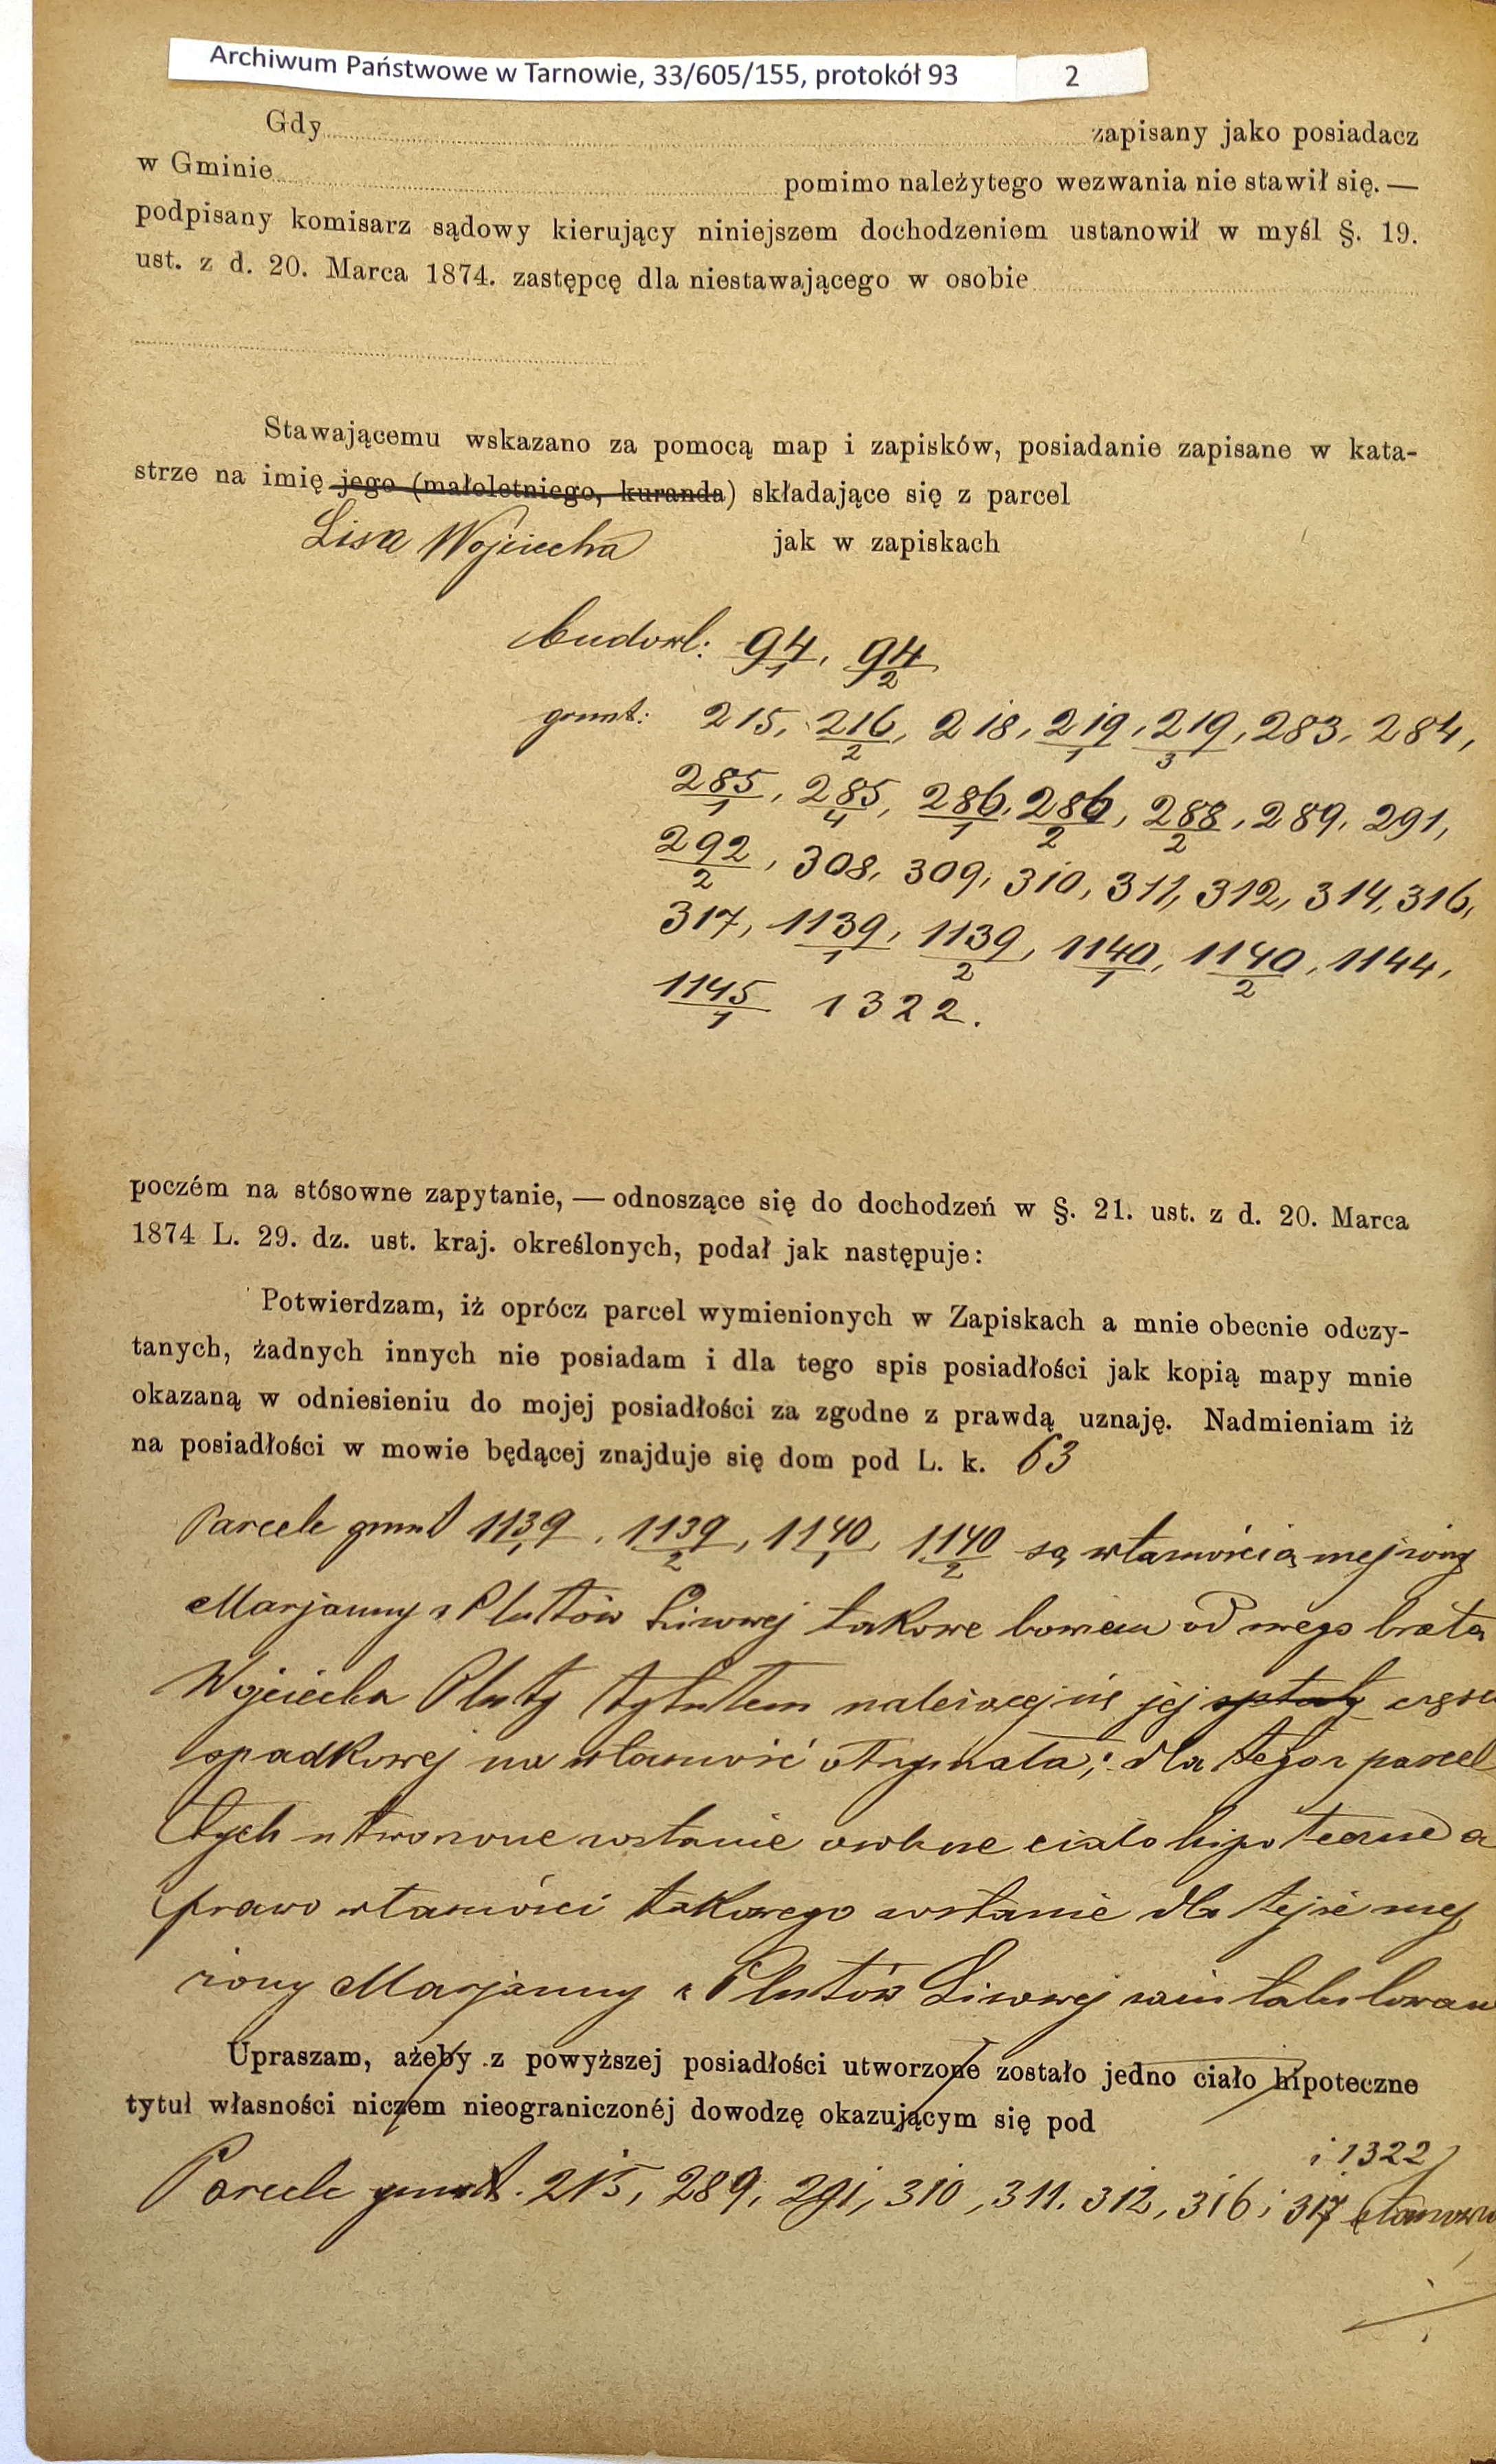 Archiwum Państwowe w Tarnowie, 33/605/155, protokół 93 2
Gdy zapisany jako posiadacz
w Gminie pomimo należytego wezwania nie stawił się. —
podpisany komisarz sądowy kierujący niniejszem dochodzeniem ustanowił w myśl §. 19.
ust. z d. 20. Marca 1874. zastępcę dla niestawającego w osobie
Stawającemu wskazano za pomocą map i zapisków, posiadanie zapisane w kata-
strze na imię jego (małoletniego, kuranda) składające się z parcel
Lisa Wojciecha jak w zapiskach
budowl: 94/1, 94/2
grunt: 215, 216/2, 218, 219/1, 219/3, 283, 284,
285/1, 285/4, 286/1, 286/2, 288/2, 289, 291,
292/2, 308, 309, 310, 311, 312, 314, 316,
317, 1139/1, 1139/2, 1140/1, 1140/2, 1144,
1145/1 1322.
poczém na stósowne zapytanie, — odnoszące się do dochodzeń w §. 21. ust. z d. 20. Marca
1874 L. 29. dz. ust. kraj. określonych, podał jak następuje:
Potwierdzam, iż oprócz parcel wymienionych w Zapiskach a mnie obecnie odczy-
tanych, żadnych innych nie posiadam i dla tego spis posiadłości jak kopią mapy mnie
okazaną w odniesieniu do mojej posiadłości za zgodne z prawdą uznaję. Nadmieniam iż
na posiadłości w mowie będącej znajduje się dom pod L. k. 63
Parcele grunt 1139/1, 1139/2, 1140/1, 1140/2 są własnością mej żony
Marjanny z Plutów Lisowej takowe bowiem od swego brata
Wojciecha Pluty tytułem należącej się jej spłaty
spadkowej na własność otrzymała; dla tego z parcel
tych utworzone zostanie osobne ciało hipoteczne a
prawo własności takowego zostanie dla tejże mej
żony Marjanny z Plutów Lisowej zaintabulowane
Upraszam, ażeby z powyższej posiadłości utworzone zostało jedno ciało hipoteczne
tytuł własności niczem nieograniczonéj dowodzę okazującym się pod
i 1322
Parcele grunt. 215, 289, 291, 310, 311, 312, 316 i 317 stanowią